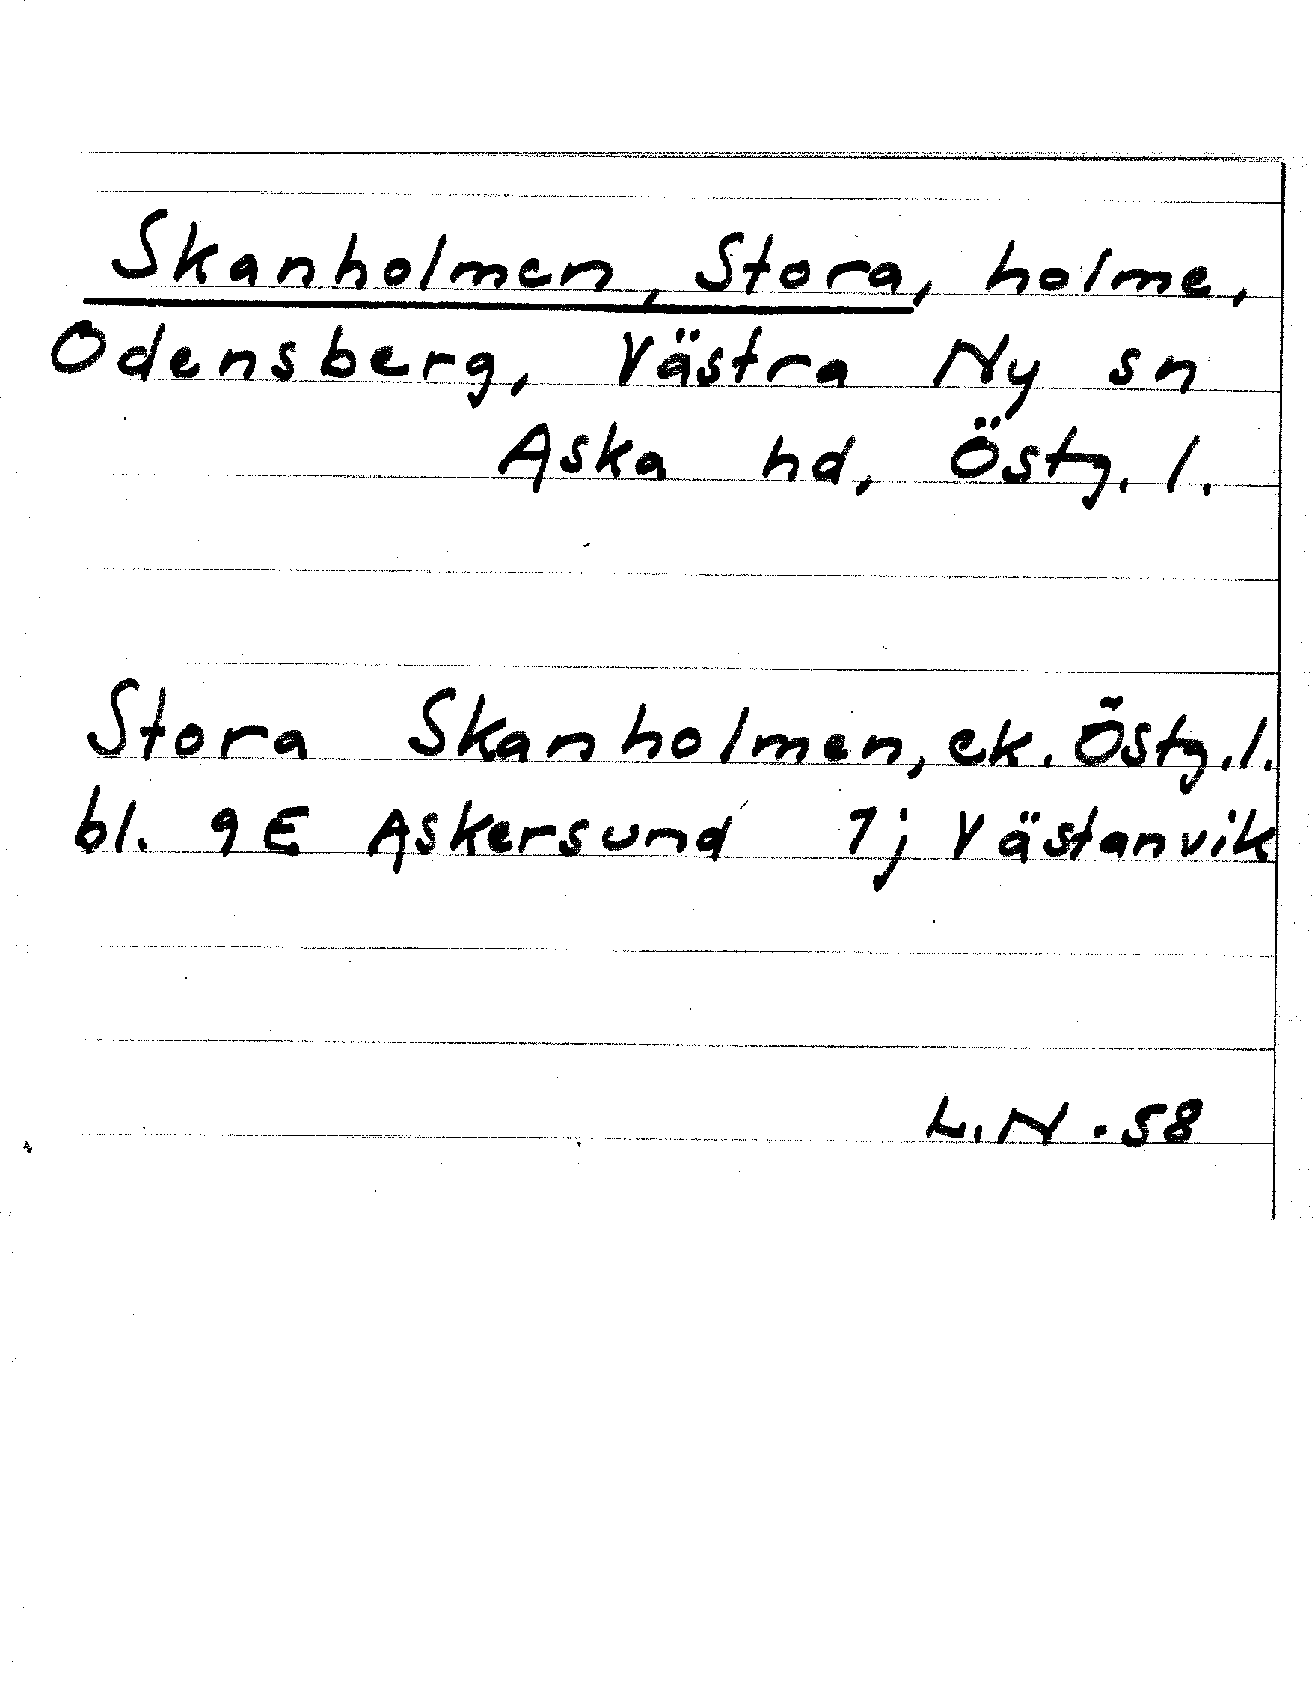 Skanholmen, Stora, holme,
Odensberg, Västra Ny sn
Aska hd, Östg. l.
Stora Skanholmen, ek. Östg. l.
bl. 9E Askersund 7j Västanvik
L.N. 58